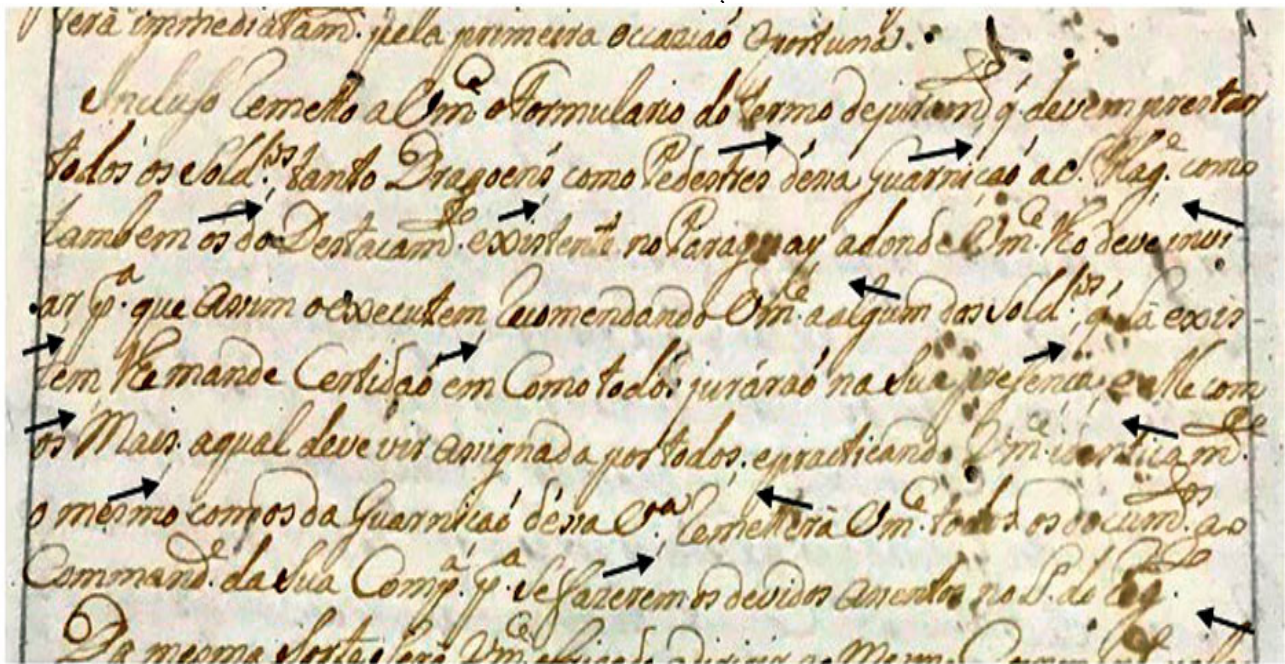 será immediatam.te pela primeira occaziaõ oportuna.
Incluso Remetto a Vm.ce o Formulario do termo de juram.to q' devem prestar
todos os Sold.os tanto Dragoens como Pedestres désta Guarniçaõ a S. Mag.e como
tambem os do Destacam.to existente no Paraguay adonde Vm.ce ho deve invi
ar p.a que assim o executem, recomendando Vm.ce a algum dos Sold.os q' lá exis
tem lhe mande Certidaõ em como todos juráraõ na sua presença, e elle com
os Mais. aqual deve vir assignada por todos, epracticando Vm.ce identicam.te
o mesmo com os da Guarniçaõ désta V.a Remetterá Vm.ce todos os docum.tos ao
Command.e da sua Comp.a p.a se fazerem os devidos assentos no L. do
Da mesma Sorte Será Vm.ce obrigado